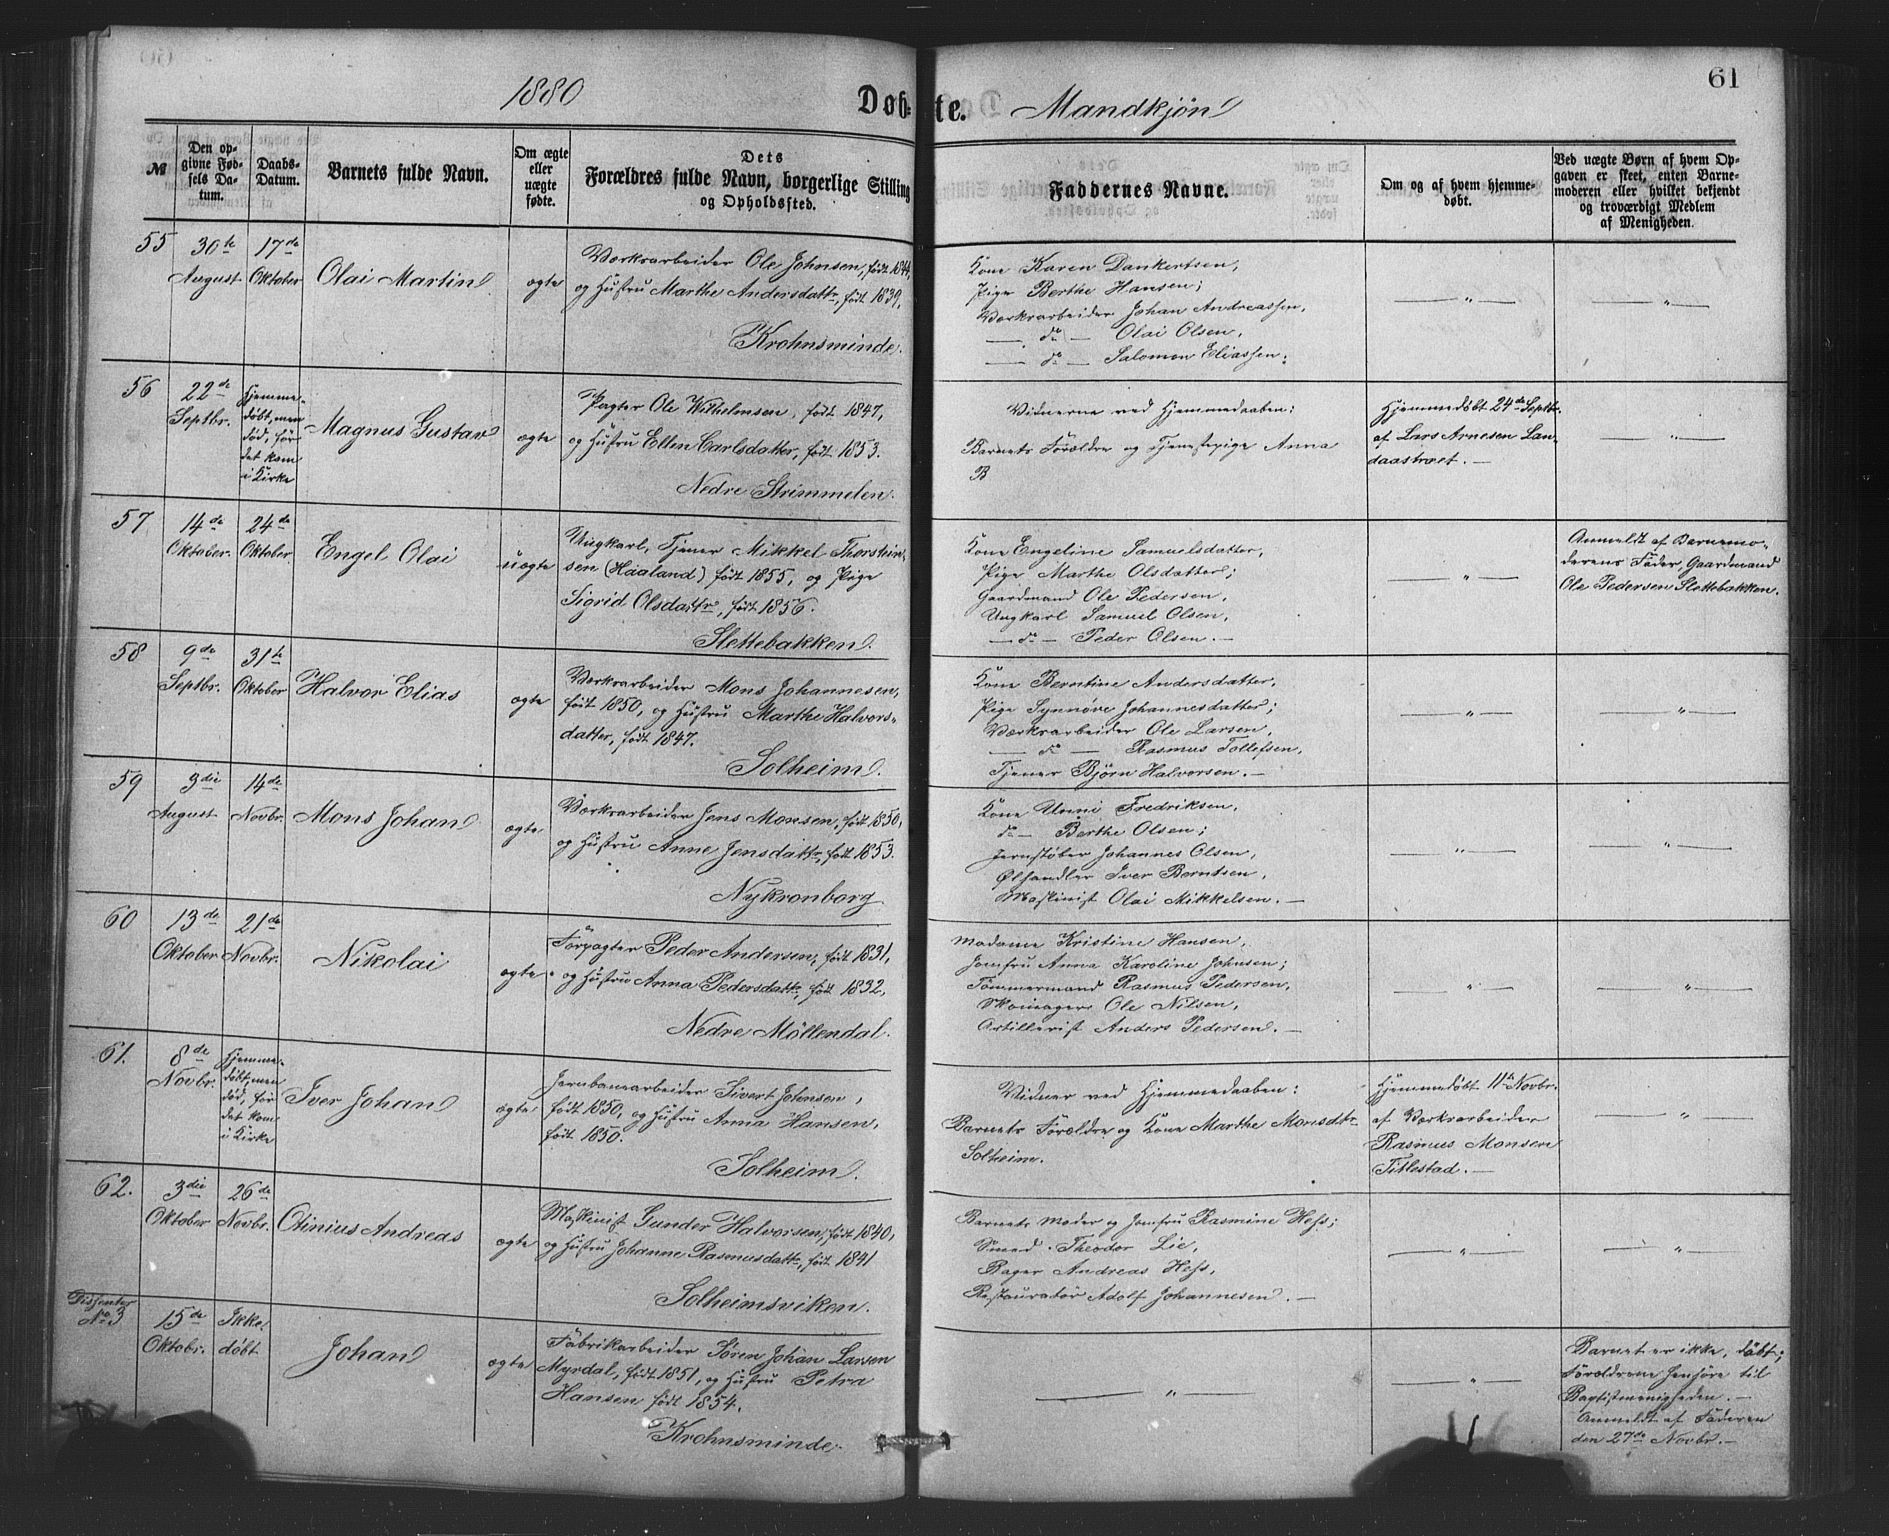 1880
Døb-te. Mandkjøn
61
№
Den op-
givne Fød-
sels Da-
tum.
Daabs-
Datum.
Barnets fulde Navn.
Om ægte
eller
uægte
fødte.
Dets
Forældres fulde Navn, borgerlige Stilling
og Opholdssted.
Faddernes Navne.
Om og af hvem hjemme-
døbt.
Ved uægte Børn af hvem Op-
gaven er skeet, enten Barne-
moderen eller hvilket bekjendt
og troværdigt Medlem
af Menigheden.
55
30te
August
17de
Oktober
Olai Martin
ægte
Værkarbeider Ole Johnsen, født 1844,
og Hustru Marthe Andersdattr, født 1839,
Krohnsminde.
Kone Karen Dankertsen,
Pige Berthe Hansen;
Værkarbeider Johan Andreassen,
— do — Olai Olsen,
— do — Salomon Eliassen.
— " —
— " —
56
22de
Septbr.
Hjemme-
døbt, men
død, før
det kom
i Kirke
Magnus Gustav
ægte
Pagter Ole Wilhelmsen, født 1847,
og Hustru Ellen Carlsdatter, født 1853.
Nedre Strimmelen.
Vidnerne ved Hjemmedaaben:
Barnets Forældre og Tjenestepige Anna
B
Hjemmedøbt 24de Septbr.
af Lars Arnesen Lan-
daastræt. —
— " —
57
14de
Oktober.
24de
Oktober
Engel Olai
uægte
Ungkarl, Tjener Mikkel Thorstein-
sen (Haaland) født 1855, og Pige
Sigrid Olsdattr, født 1856.
Slettebakken.
Kone Engeline Samuelsdatter,
Pige Marthe Olsdatter;
Gaardmand Ole Pedersen,
Ungkarl Samuel Olsen,
— do — Peder Olsen. —
— " —
Anmeldt af Barnemo-
derens Fader, Gaardmand
Ole Pedersen Slettebakken.
58
9de
Septbr.
31te
Oktober
Halvor Elias
ægte
Værkarbeider Mons Johannesen,
født 1850, og Hustru Marthe Halvors-
datter, født 1847.
Solheim.
Kone Berntine Andersdatter,
Pige Synnøve Johannesdatter;
Værkarbeider Ole Larsen,
— do — Rasmus Tollefsen,
Tjener Bjørn Halvorsen. —
— " —
— " —
59
3die
August
14de
Novbr.
Mons Johan
ægte
Værkarbeider Jens Monsen, født 1850,
og Hustru Anne Jensdattr, født 1853.
Nykronborg
Kone Unni Fredriksen,
do — Berthe Olsen;
Jernstøber Johannes Olsen,
Ølhandler Iver Berntsen,
Maskinist Olai Mikkelsen. —
— " —
— " —
60
13de
Oktober
21de
Novbr.
Nikolai
ægte
Forpagter Peder Andersen, født 1831,
og Hustru Anna Pedersdattr, født 1832,
Nedre Möllendal.
Madame Kristine Hansen,
Jomfru Anna Karoline Johnsen;
Tømmermand Rasmus Pedersen,
Skomager Ole Nilsen,
Artillerist Anders Pedersen. —
— " —
— " —
61.
8de
Novbr.
Hjemme-
døbt, men
død, før
det kom
i Kirke
Iver Johan
ægte
Jernbanearbeider Sivert Johnsen,
født 1850, og Hustru Anna Hansen,
født 1850.
Solheim.
Vidner ved Hjemmedaaben:
Barnets Forældre og Kone Marthe Monsdtr
Solheim.
Hjemmedøbt 11te Novbr.
af Værkarbeider
Rasmus Monsen
Titlestad. —
— " —
62.
3die
Oktober
26de
Novbr.
Otinius Andreas
ægte
Maskinist Gunder Halvorsen, født 1840,
og Hustru Johanne Rasmusdattr, født 1841
Solheimsviken.
Barnets Moder og Jomfru Rasmine Hess;
Smed Theodor Lie,
Bager Andreas Hess,
Restauratør Adolf Johannesen. —
— " —
— " —
Dissenter
No 3
15de
Oktobr.
Ikke
døbt
Johan
ægte
Fabrikarbeider Søren Johan Larsen
Myrdal, født 1851, og Hustru Petra
Hansen født 1854.
Krohnsminde.
— " —
— " —
Barnet er ikke døbt;
Forældrene henhøre til
Baptistmenigheden. —
Anmeldt af Faderen
den 27de Novbr. —